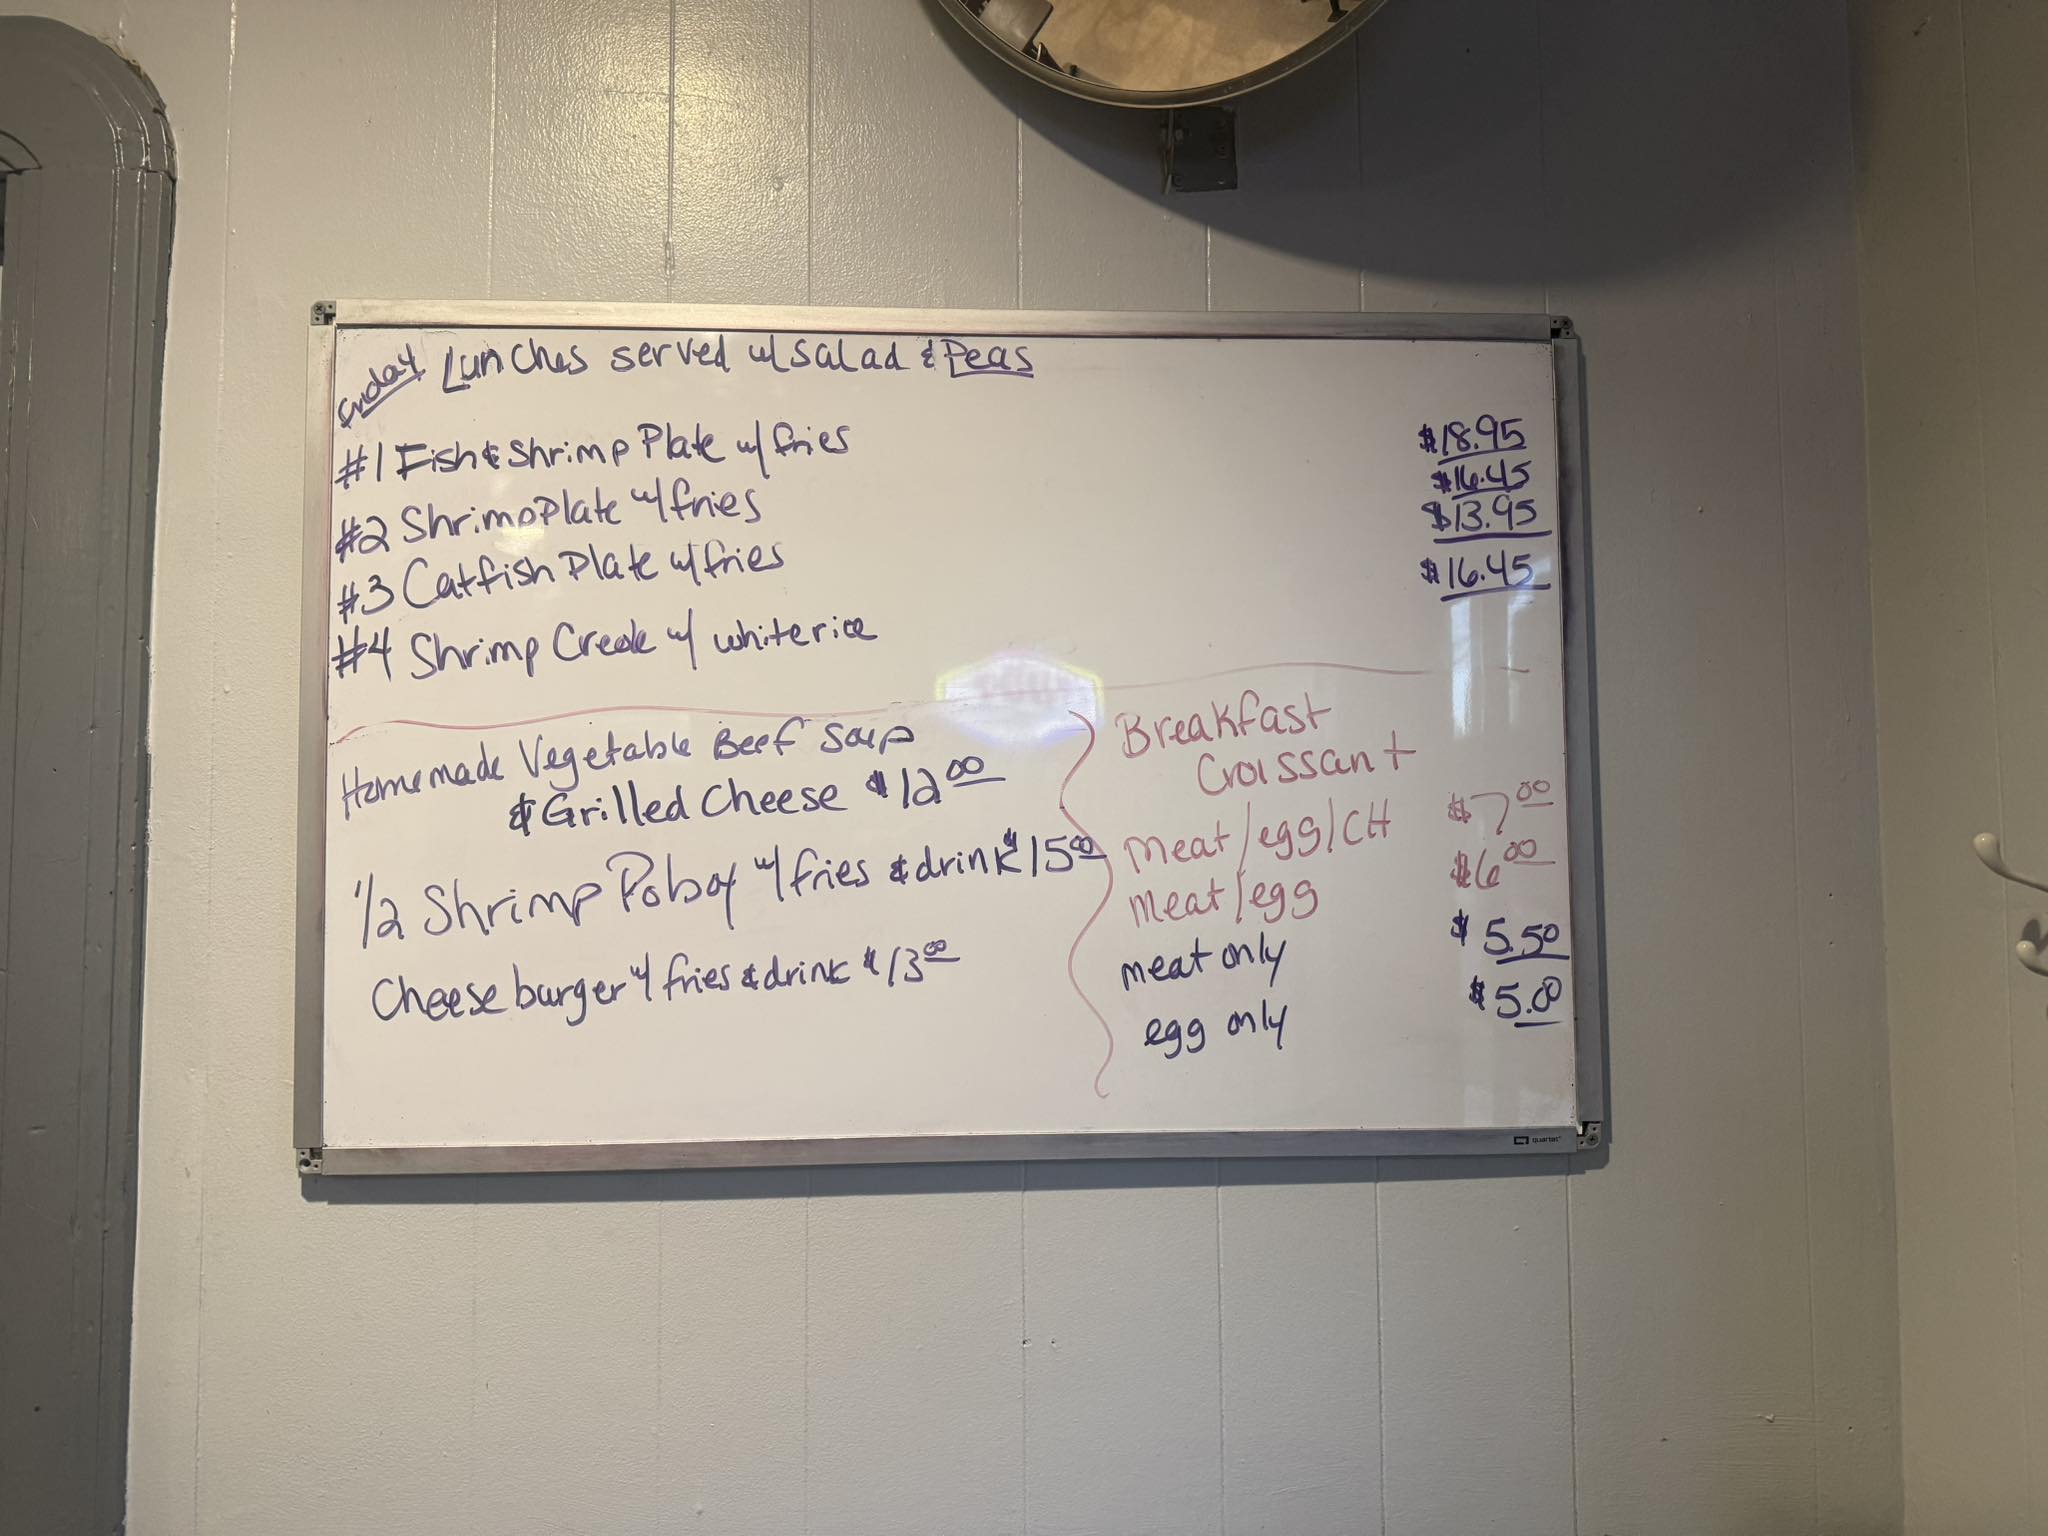 Friday Lunches served w/ salad & Peas
#1 Fish & Shrimp Plate w/ fries $18.95
#2 Shrimp Plate w/ fries $16.45
#3 Catfish Plate w/ fries $13.95
#4 Shrimp Creole w/ white rice $16.45
Homemade Vegetable Beef Soup
& Grilled Cheese $12.00
1/2 Shrimp Poboy w/ fries & drink $15.00
Cheeseburger w/ fries & drink $13.00
Breakfast
Croissant
meat/egg/CH $7.00
meat/egg $6.00
meat only $5.50
egg only $5.00
quartet